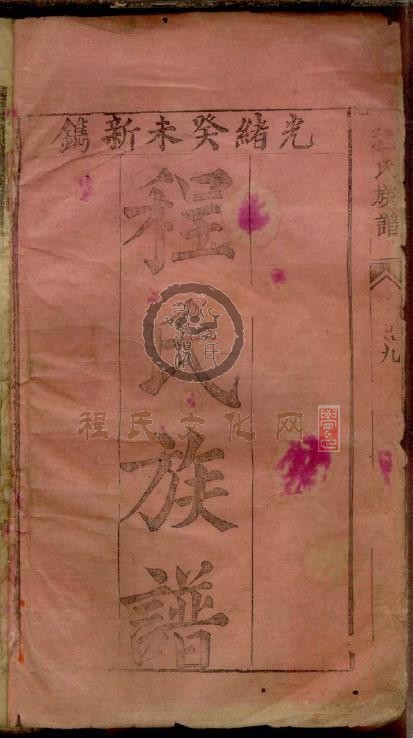 光緒癸未新鐫
程氏族譜
氏族譜
九
程氏文化网